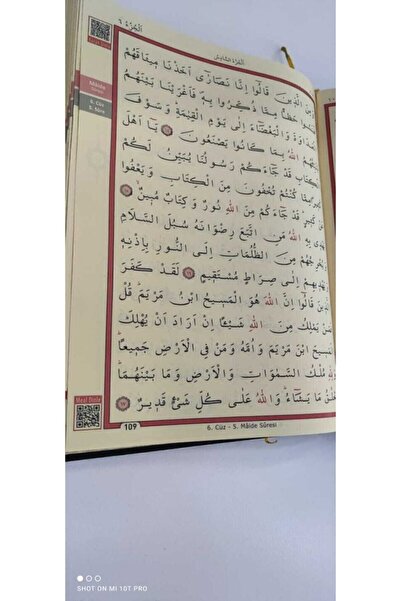 الْجُزْءُ ٦
اَلْجُزْءُ السَّادِسُ
الَّذ۪ينَ قَالُٓوا اِنَّا نَصَارٰٓى اَخَذْنَا م۪يثَاقَهُمْ
حَظًّا مِمَّا ذُكِّرُوا بِه۪ۖ فَاَغْرَيْنَا بَيْنَهُمُ
وَالْبَغْضَٓاءَ اِلٰى يَوْمِ الْقِيٰمَةِۜ وَسَوْفَ
اللّٰهُ بِمَا كَانُوا يَصْنَعُونَ ﴿١٤﴾ يَٓا اَهْلَ
قَدْ جَٓاءَكُمْ رَسُولُنَا يُبَيِّنُ لَكُمْ
مِمَّا كُنْتُمْ تُخْفُونَ مِنَ الْكِتَابِ وَيَعْفُوا
كَث۪يرٍۜ قَدْ جَٓاءَكُمْ مِنَ اللّٰهِ نُورٌ وَكِتَابٌ مُب۪ينٌۙ ﴿١٥﴾
بِهِ اللّٰهُ مَنِ اتَّبَعَ رِضْوَانَهُ سُبُلَ السَّلَامِ
مِنَ الظُّلُمَاتِ اِلَى النُّورِ بِاِذْنِه۪
اِلٰى صِرَاطٍ مُسْتَق۪يمٍ ﴿١٦﴾ لَقَدْ كَفَرَ
قَالُٓوا اِنَّ اللّٰهَ هُوَ الْمَس۪يحُ ابْنُ مَرْيَمَۜ قُلْ
يَمْلِكُ مِنَ اللّٰهِ شَيْـًٔا اِنْ اَرَادَ اَنْ يُهْلِكَ
ابْنَ مَرْيَمَ وَاُمَّهُ وَمَنْ فِي الْاَرْضِ جَم۪يعًاۜ
مُلْكُ السَّمٰوَاتِ وَالْاَرْضِ وَمَا بَيْنَهُمَاۜ
مَا يَشَٓاءُۜ وَاللّٰهُ عَلٰى كُلِّ شَيْءٍ قَد۪يرٌ ﴿١٧﴾
Mâide
Sûresi
6. Cüz
5. Sûre
Meal Dinle
109
6. Cüz - 5. Mâide Sûresi
SHOT ON MI 10T PRO